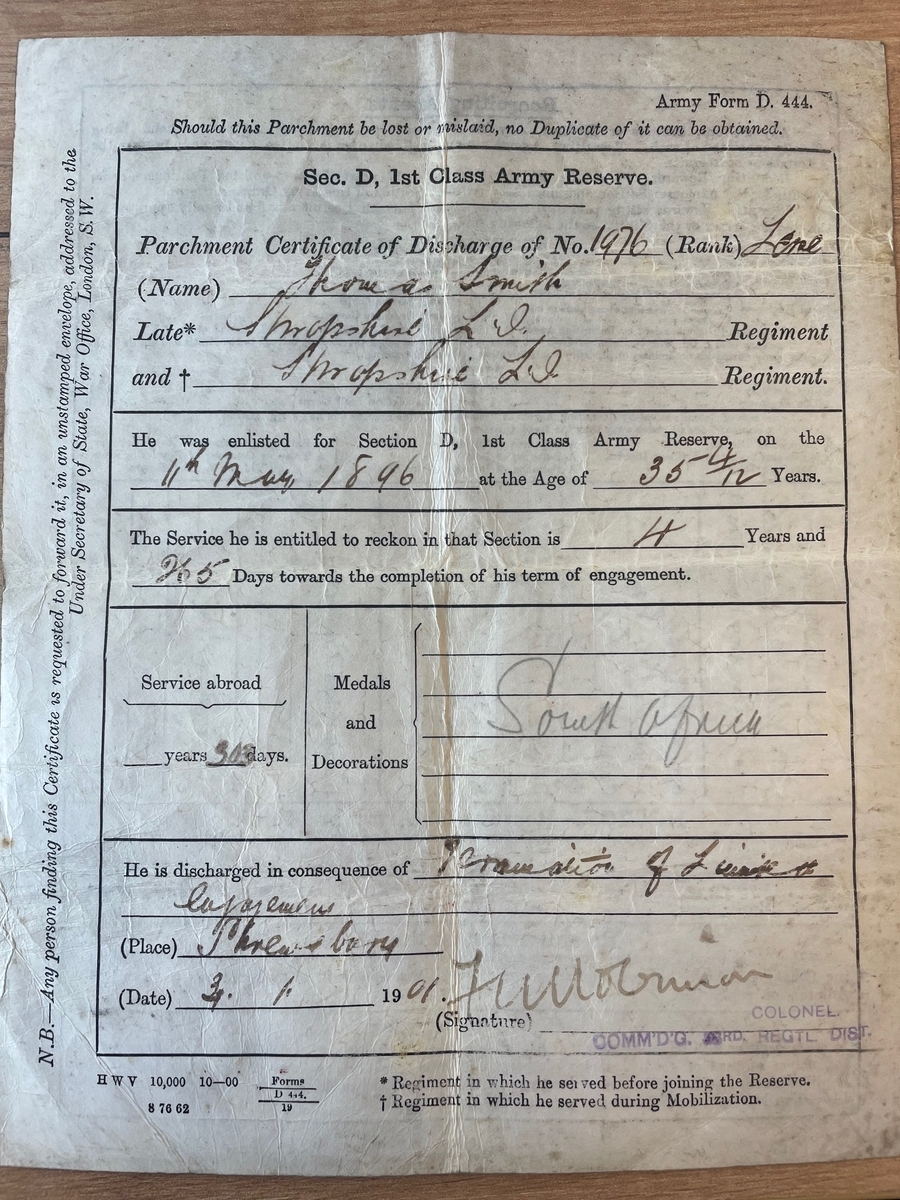 Army Form D. 444.
Should this Parchment be lost or mislaid, no Duplicate of it can be obtained.
Sec. D, 1st Class Army Reserve.
Parchment Certificate of Discharge of No. 1976 (Rank)
(Name) Thomas Smith
Late* Shropshire L.I. Regiment
and † Shropshire L.I. Regiment.
He was enlisted for Section D, 1st Class Army Reserve, on the
11th May 1896 at the Age of 35 4/12 Years.
The Service he is entitled to reckon in that Section is 4 Years and
Days towards the completion of his term of engagement.
Service abroad
years days.
Medals
and
Decorations
South Africa
He is discharged in consequence of of
(Place) Shrewsbury
(Date) 1901.
(Signature)
COLONEL.
COMM'D'G. RD. REGTL DIST.
H W V 10,000 10—00 Forms D 444. 19
8 76 62
* Regiment in which he served before joining the Reserve.
† Regiment in which he served during Mobilization.
N.B.—Any person finding this Certificate is requested to forward it, in an unstamped envelope, addressed to the
Under Secretary of State, War Office, London, S.W.